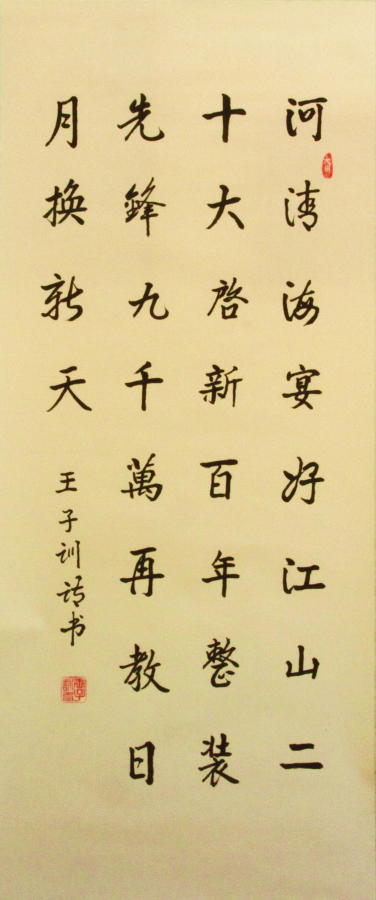 河清海宴好江山二
十大啓新百年整装
先鋒九千萬再教日
月换新天
王子训书